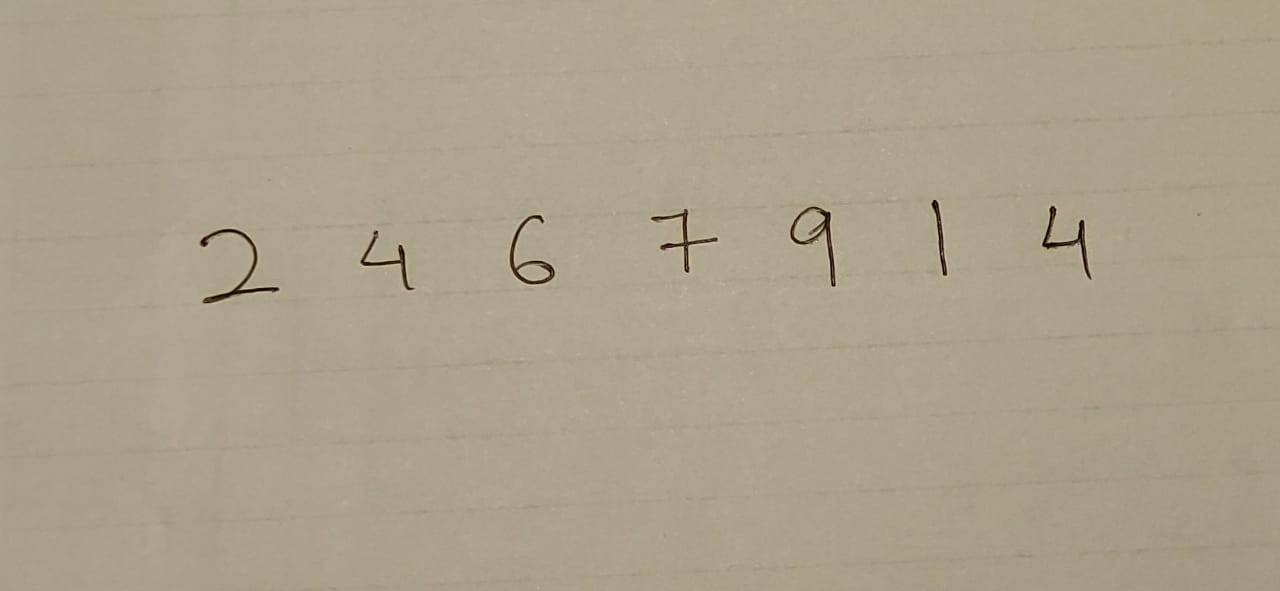 2 4 6 7 9 1 4